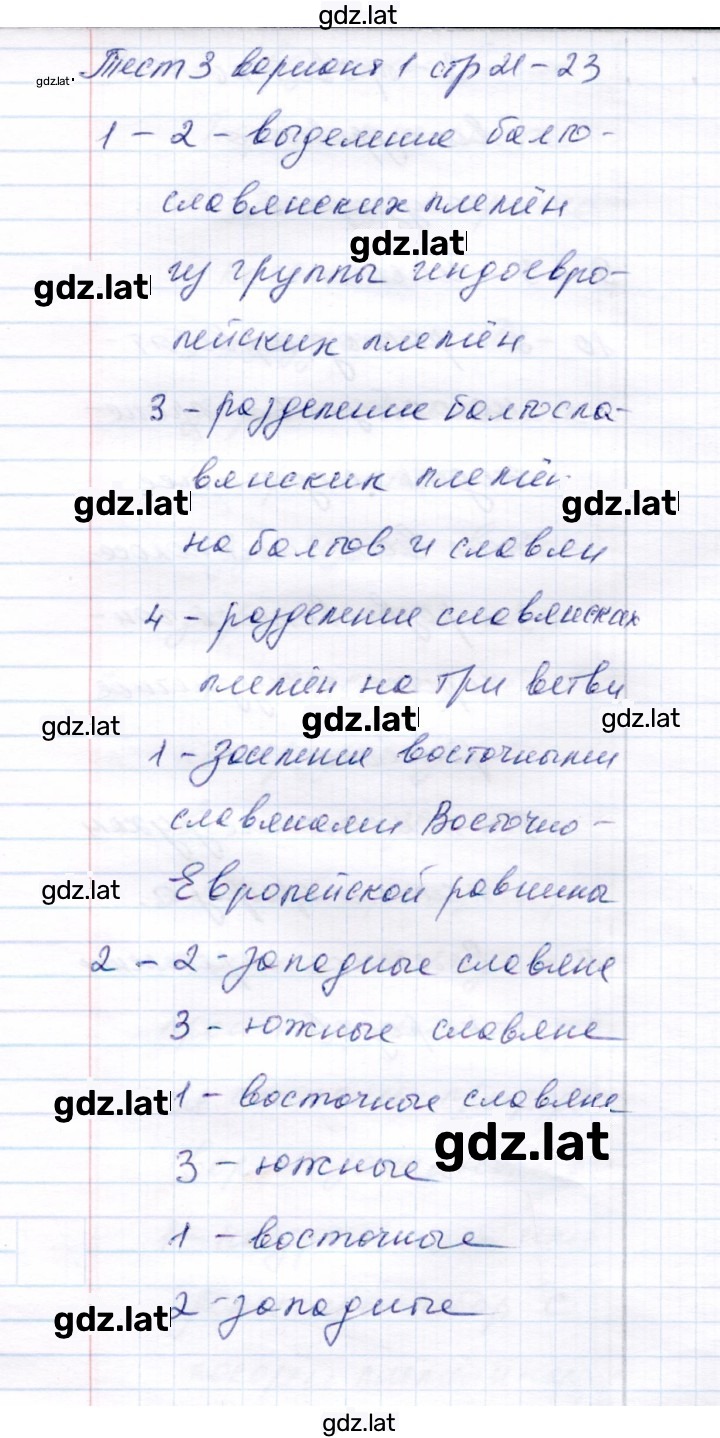 gdz.lat
gdz.lat Тест 3 вариант 1 стр 21-23
1 - 2 - выделение балто-
славянских племён
gdz.lat
gdz.lat из группы индоевро-
пейских племён
3 - разделение балтосла-
вянских племён
gdz.lat gdz.lat
на балтов и славян
4 - разделение славянских
племён на три ветви
gdz.lat gdz.lat gdz.lat
1 - заселение восточными
славянами Восточно-
gdz.lat Европейской равнины
2 - 2 - западные славяне
3 - южные славяне
gdz.lat 1 - восточные славяне
gdz.lat
3 - южные
1 - восточные
gdz.lat 2 - западные
gdz.lat